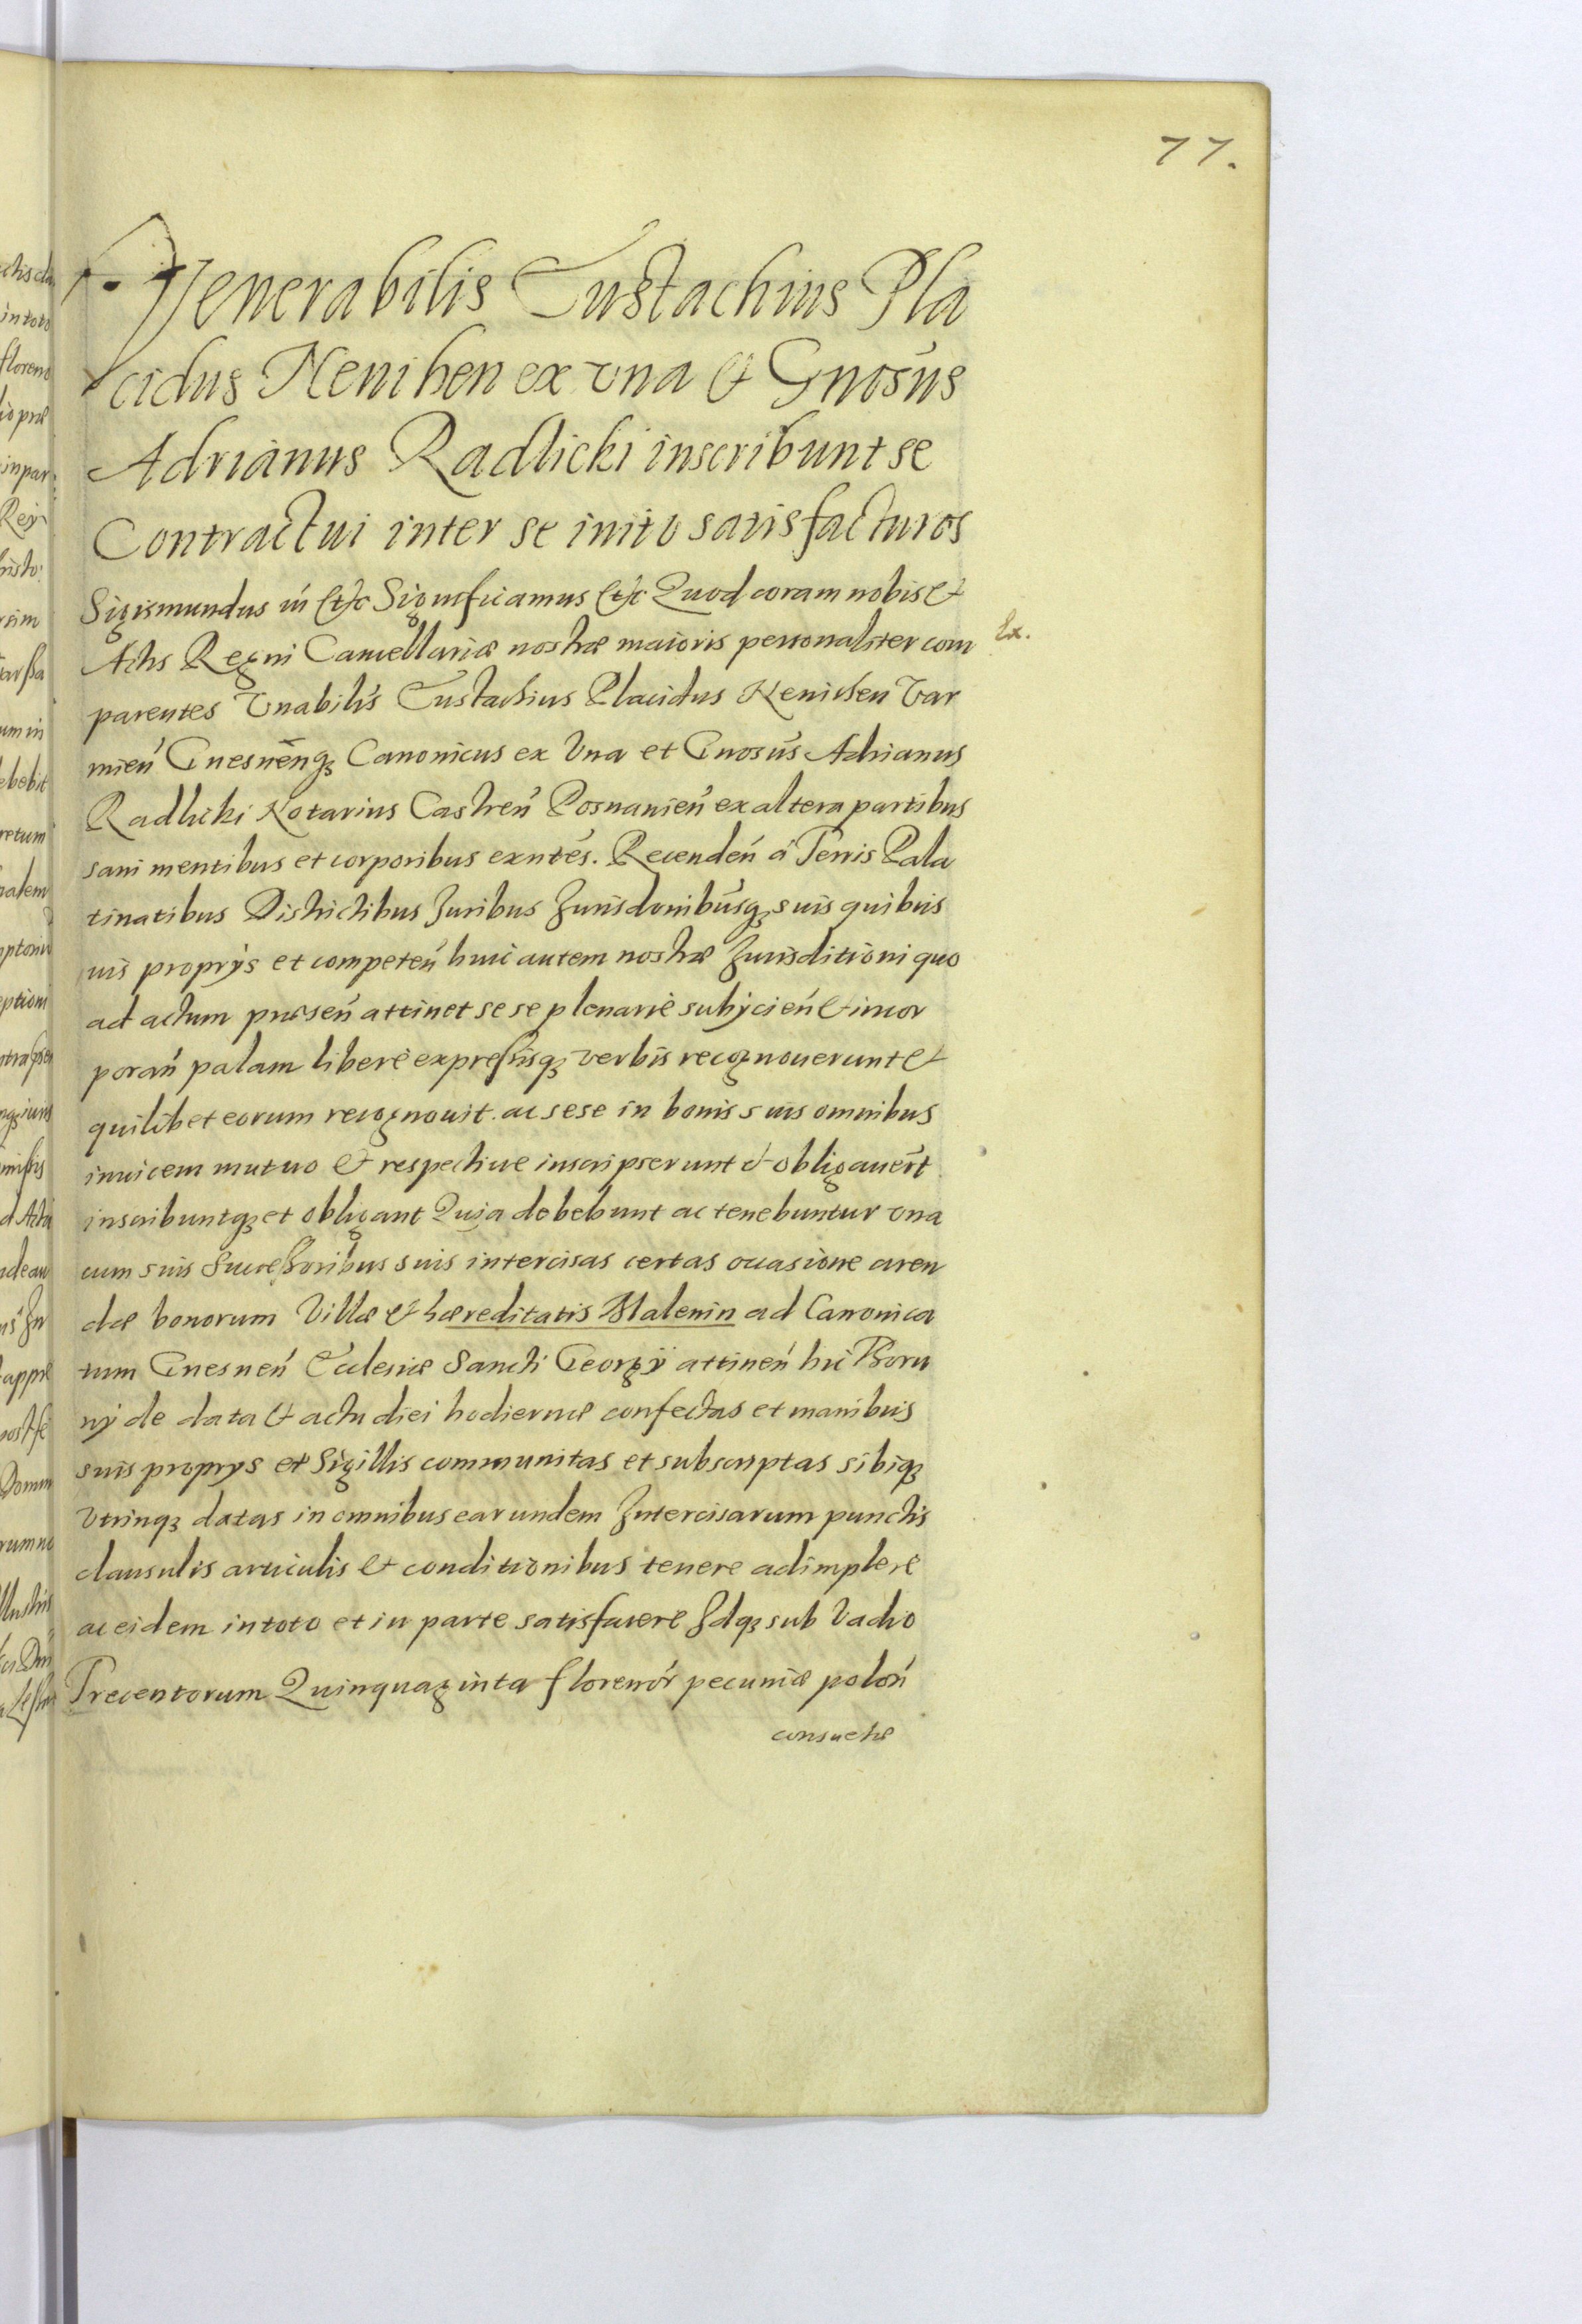 77.
Venerabilis Eustachius Pla
cidus Kenihen ex vna et Gnosus
Adrianus Radlicki inscribunt se
Contractui inter se inito satisfacturos
Sigismundus iii etc Significamus etc Quod coram nobis et
Actis Regni Cancellariæ nostræ maioris personaliter com
Ex.
parentes Vnabilis Eustachius Placidus Kenichen Var
mien Gnesnenq3 Canonicus ex Vna et Gnosus Adrianus
Radlicki Notarius Castren Posnanien ex altera partibus
sani mentibus et corporibus exntes. Recenden à Terris Pala
tinatibus Districtibus Juribus Jurisdonibusq3 suis quibus
uis proprijs et competen huic autem nostræ Jurisditioni quo
ad actum præsen attinet sese plenarie subijcien et incor
poran palam liberè expressisq3 verbis recognouerunt et
quilibet eorum recognouit. ac sese in bonis suis omnibus
inuicem mutuo et respectiue inscripserunt et obligauert
inscribuntq3 et obligant Quia debebunt ac tenebuntur vna
cum suis Successoribus suis intercisas certas occasione aren
dæ bonorum Villæ et hæreditatis Malenin ad Canonica
tum Gnesnen Ecclesiæ Sancti Georgÿ attinen hic Thoru
nÿ de data et actu diei hodiernæ confectas et manibus
suis proprijs et Sigillis communitas et subscriptas sibiq3
Vtrinq3 datas in omnibus earundem Intercisarum punctis
clausulis articulis et conditionibus tenere adimplere
ac eidem in toto et in parte satisfacere Idq3 sub Vadio
Trecentorum Quinquaginta florenor pecuniæ polon
consuetæ